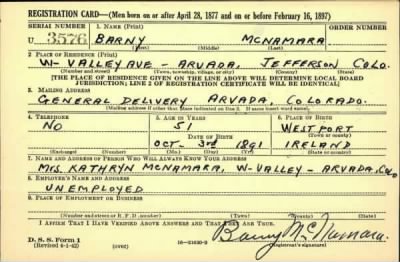 REGISTRATION CARD—(Men born on or after April 28, 1877 and on or before February 16, 1897)
SERIAL NUMBER 1. NAME (Print) ORDER NUMBER
U 3576 BARNY MCNAMARA
(First) (Middle) (Last)
2. PLACE OF RESIDENCE (Print)
W- VALLEY AVE - ARVADA, JEFFERSON COLO.
(Number and street) (Town, township, village, or city) (County) (State)
[THE PLACE OF RESIDENCE GIVEN ON THE LINE ABOVE WILL DETERMINE LOCAL BOARD
JURISDICTION; LINE 2 OF REGISTRATION CERTIFICATE WILL BE IDENTICAL]
3. MAILING ADDRESS
GENERAL DELIVERY ARVADA, COLORADO.
[Mailing address if other than place indicated on line 2. If same insert word same]
4. TELEPHONE 5. AGE IN YEARS 6. PLACE OF BIRTH
NO 51 WESTPORT
DATE OF BIRTH (Town or county)
OCT- 3rd 1891 IRELAND
(Exchange) (Number) (Mo.) (Day) (Yr.) (State or country)
7. NAME AND ADDRESS OF PERSON WHO WILL ALWAYS KNOW YOUR ADDRESS
MRS. KATHRYN MCNAMARA, W-VALLEY - ARVADA, COLO
8. EMPLOYER'S NAME AND ADDRESS
UNEMPLOYED
9. PLACE OF EMPLOYMENT OR BUSINESS
(Number and street or R. F. D. number) (Town) (County) (State)
I AFFIRM THAT I HAVE VERIFIED ABOVE ANSWERS AND THAT THEY ARE TRUE.
D. S. S. Form 1
(Revised 4-1-42) (over) 16—21630-2 Barny McNamara.
(Registrant's signature)